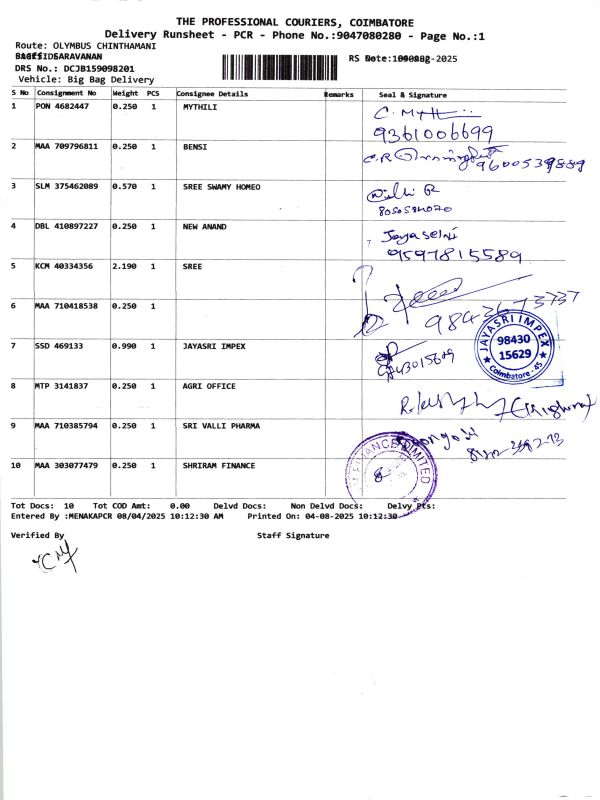 THE PROFESSIONAL COURIERS, COIMBATORE
Delivery Runsheet - PCR - Phone No.:9047080280 - Page No.:1
Route: OLYMBUS CHINTHAMANI
SARAVANAN
DRS No.: DCJB159098201
Vehicle: Big Bag Delivery
RS -2025
S No Consignment No Weight PCS Consignee Details Remarks Seal & Signature
1 PON 4682447 0.250 1 MYTHILI
9361006699
2 MAA 709796811 0.250 1 BENSI
3 SLM 375462089 0.570 1 SREE SWAMY HOMEO
4 DBL 410897227 0.250 1 NEW ANAND
9597815589
5 KCM 40334356 2.190 1 SREE
6 MAA 710418538 0.250 1
7 SSD 469133 0.990 1 JAYASRI IMPEX
JAYASRI IMPEX
98430
15629
Coimbatore - 45
8 MTP 3141837 0.250 1 AGRI OFFICE
9 MAA 710385794 0.250 1 SRI VALLI PHARMA
10 MAA 303077479 0.250 1 SHRIRAM FINANCE
FINANCE LIMITED
Tot Docs: 10 Tot COD Amt: 0.00 Delvd Docs: Non Delvd Docs: Delvy Pts:
Entered By :MENAKAPCR 08/04/2025 10:12:30 AM Printed On: 04-08-2025 10:12:30
Verified By Staff Signature